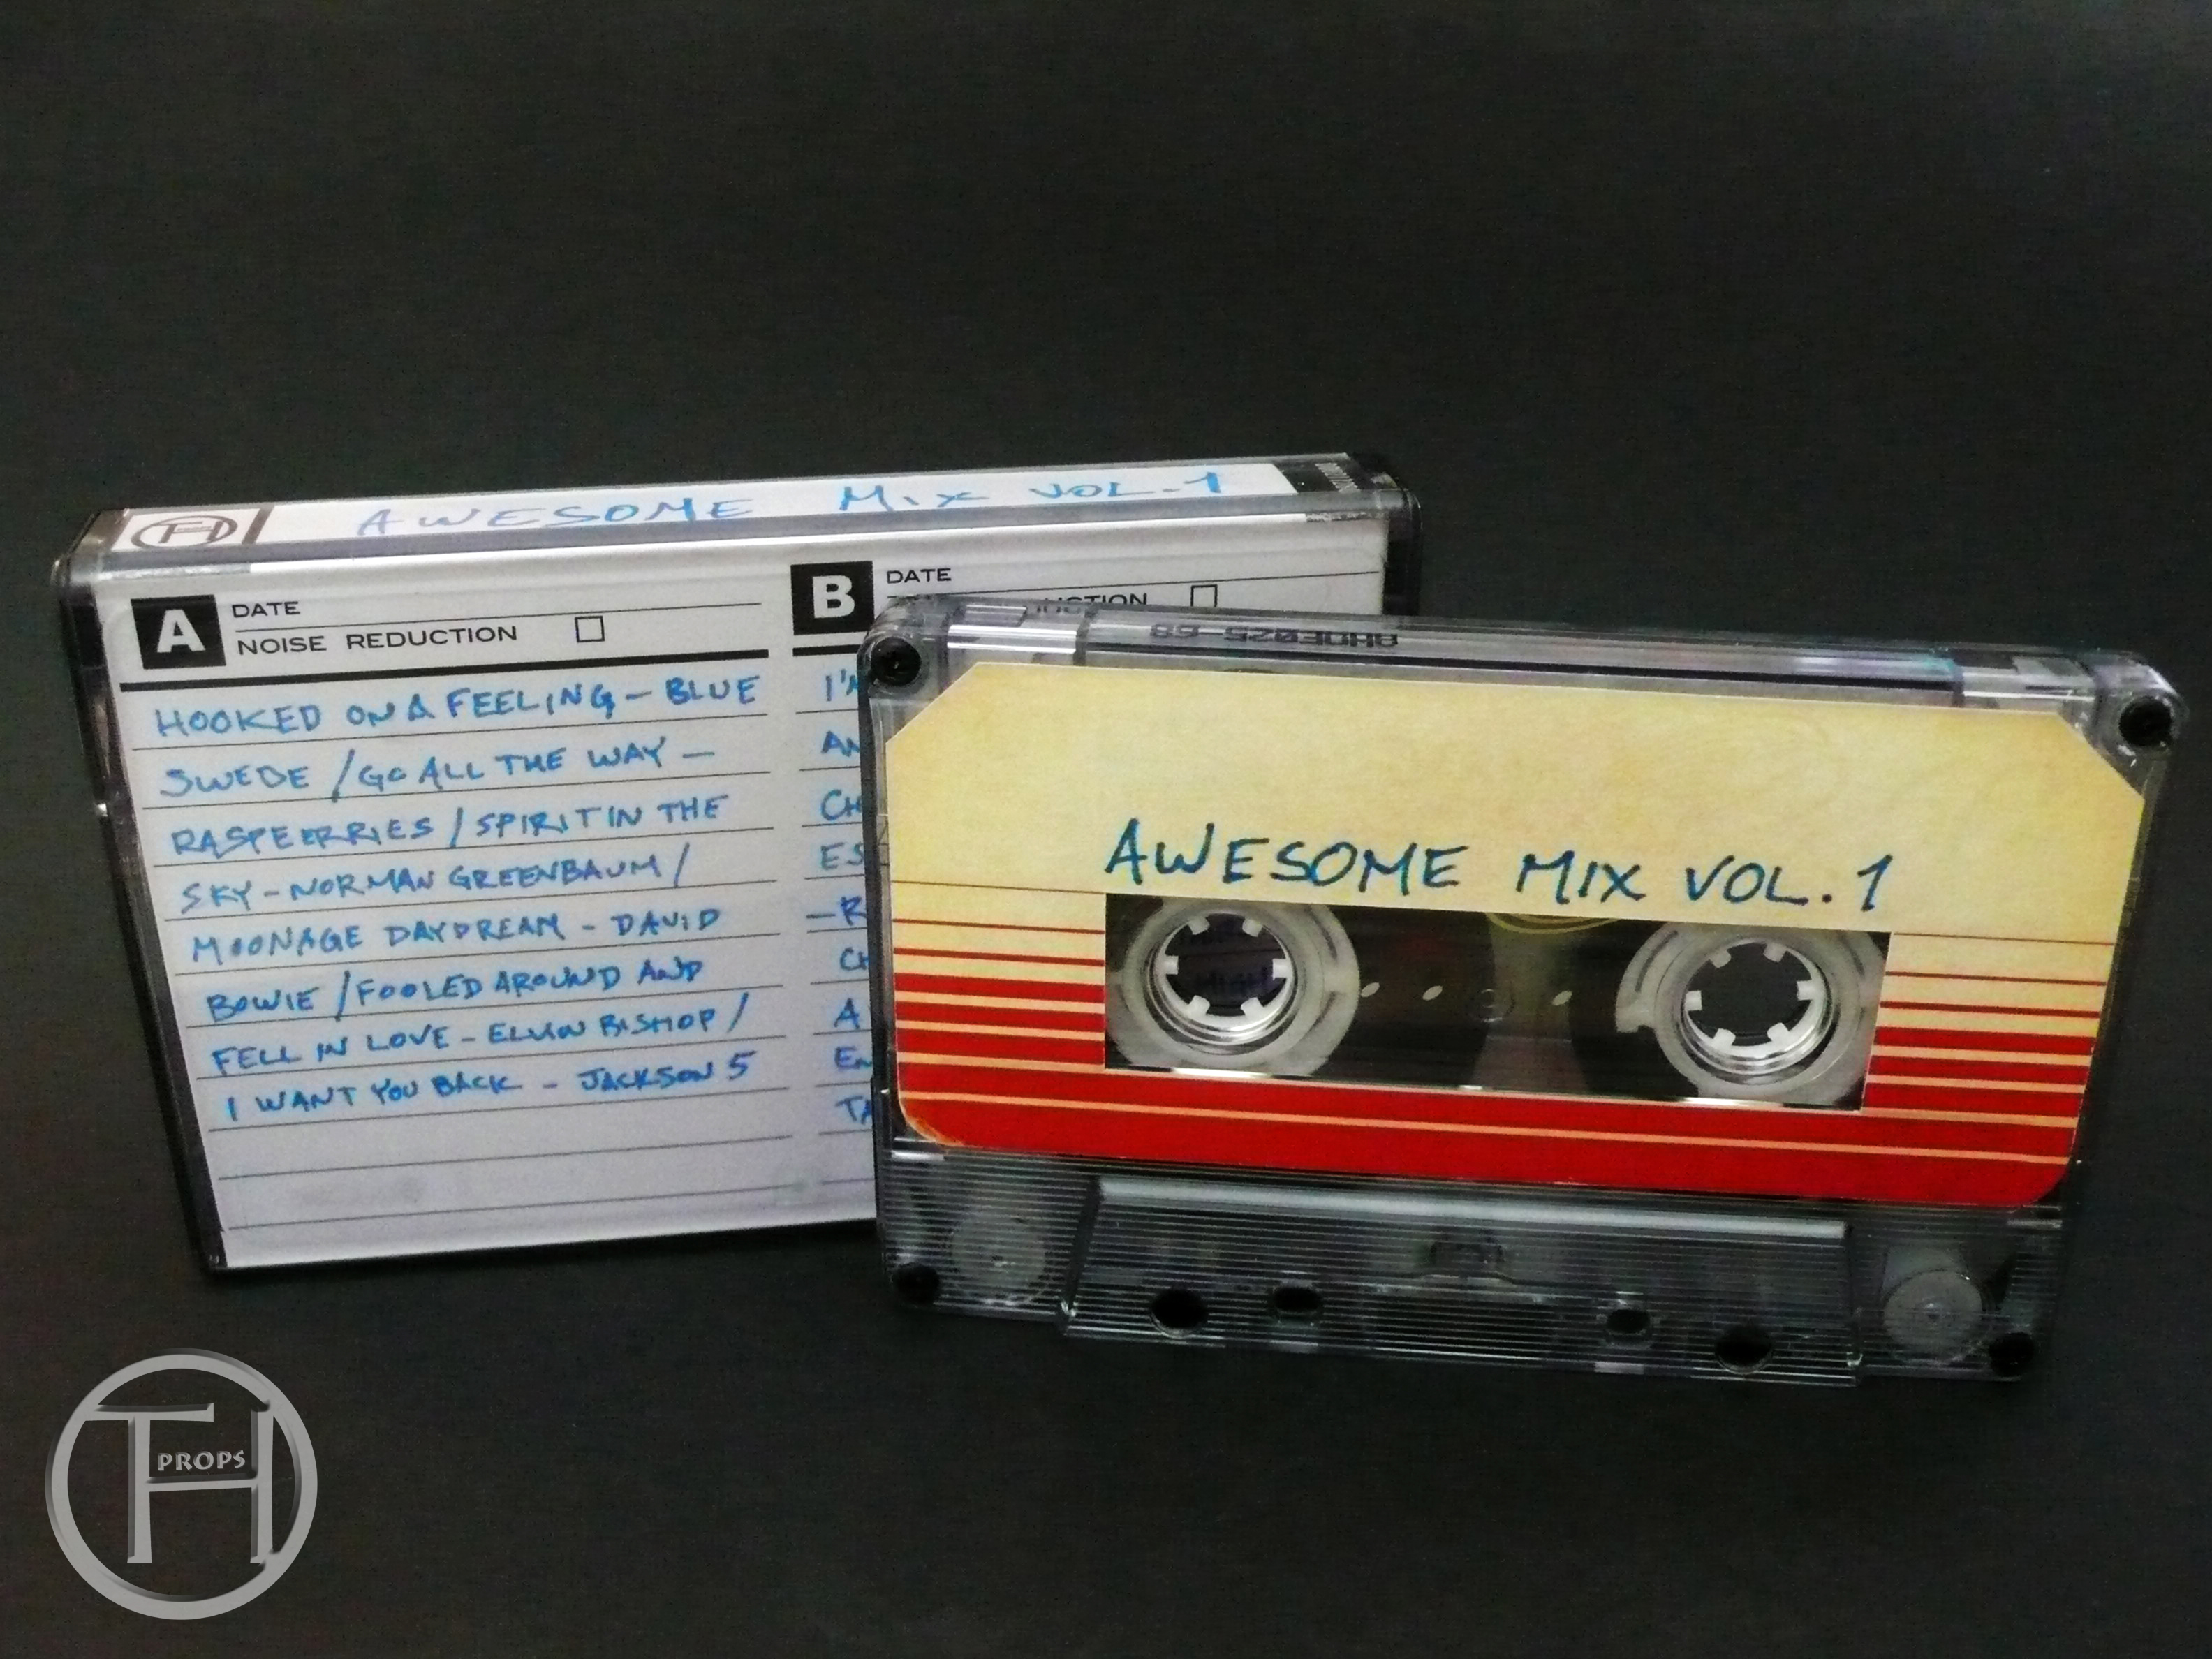 AWESOME MIX VOL.1
A
DATE
NOISE REDUCTION
HOOKED ON A FEELING – BLUE
SWEDE / GO ALL THE WAY –
RASPBERRIES / SPIRIT IN THE
SKY – NORMAN GREENBAUM /
MOONAGE DAYDREAM – DAVID
BOWIE / FOOLED AROUND AND
FELL IN LOVE – ELVIN BISHOP /
I WANT YOU BACK – JACKSON 5
B
DATE
I'M
AN
CH
ES
– R
CH
A
TA
AWESOME MIX VOL. 1
TH
PROPS